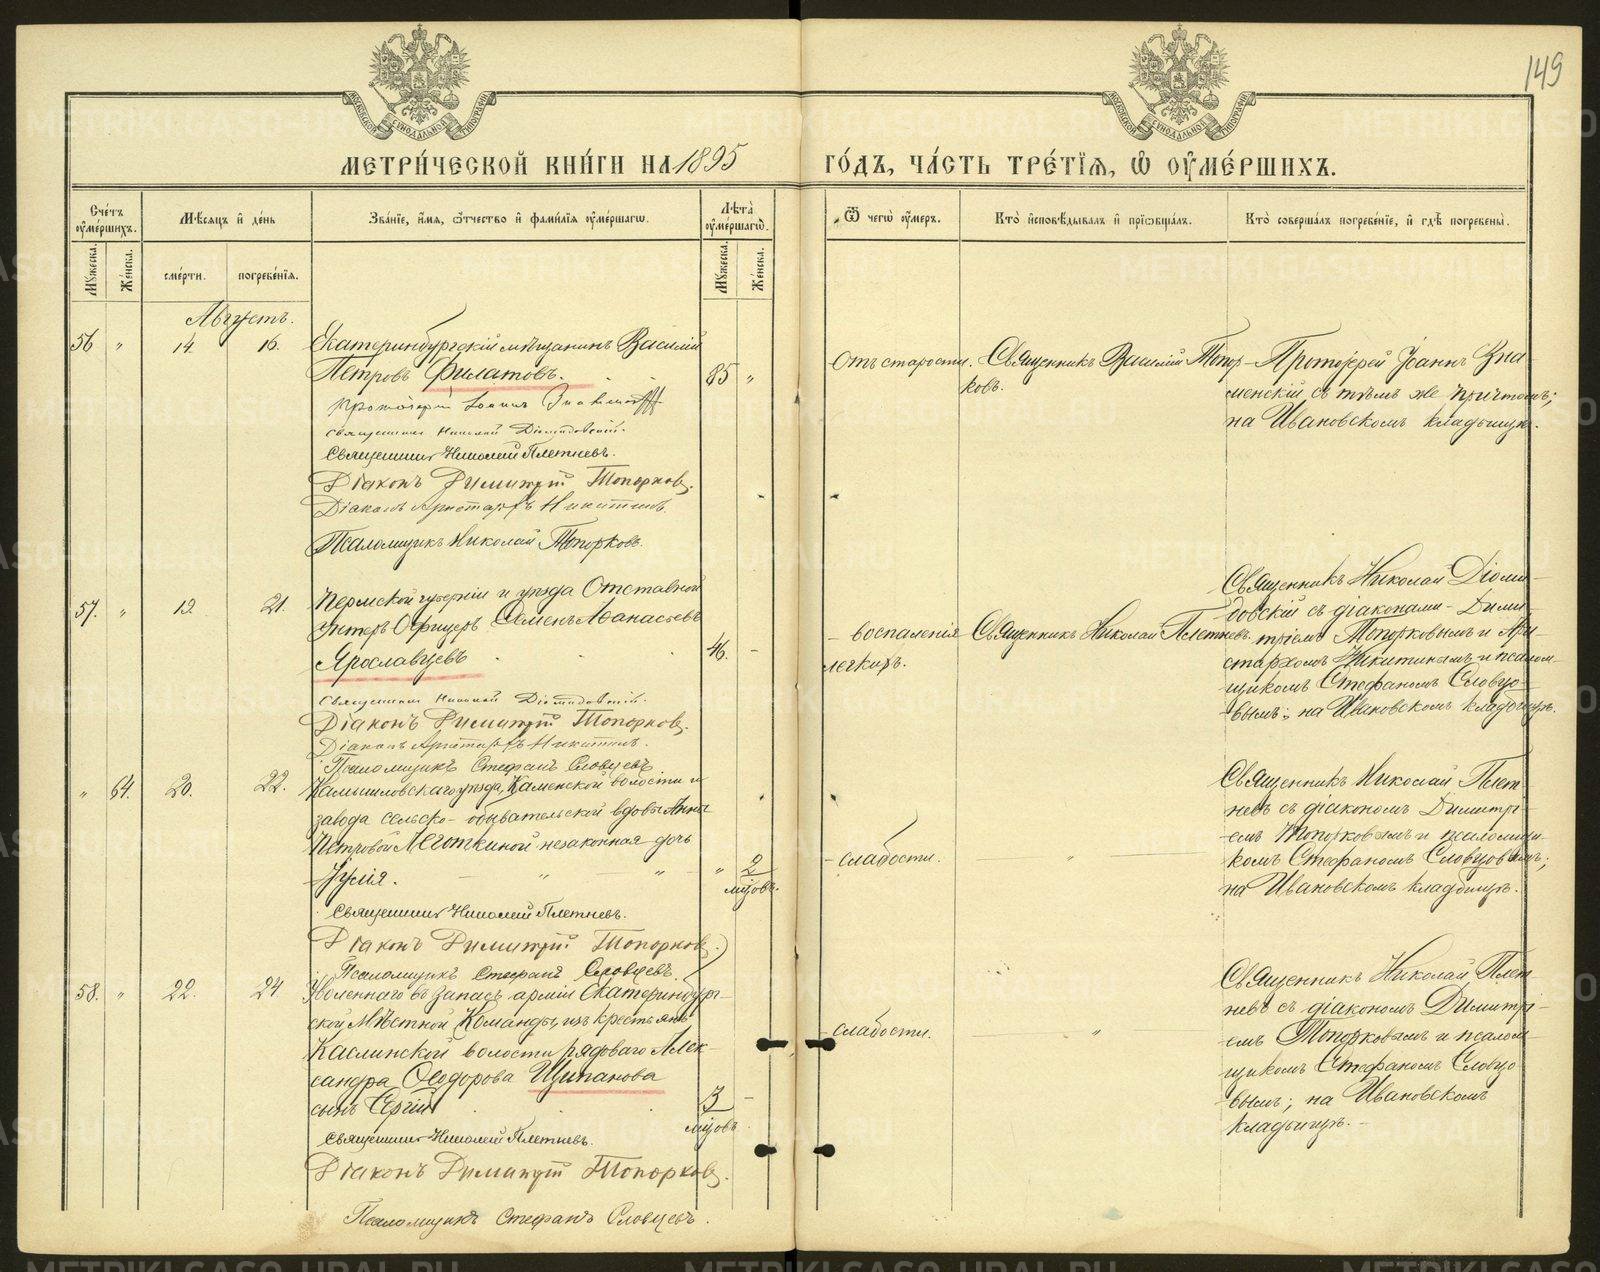 149
МОСКОВСКОЙ СѴНОДАЛЬНОЙ ТИПОГРАФІИ
МОСКОВСКОЙ СѴНОДАЛЬНОЙ ТИПОГРАФІИ
МЕТРИ́ЧЕСКОЙ КНИ́ГИ НА 1895 ГО́ДЪ, ЧА́СТЬ ТРЕ́ТІѦ, Ѽ ОУМЕ́РШИХЪ.
Сче́тъ оуме́ршихъ.
Мѣ́сяцъ и де́нь
Зва́нїе, и́мя, ѻ́тчество и фами́лїя оуме́ршагѡ.
Лѣта̀ оуме́ршагѡ.
Ѿ чегѡ̀ оу́меръ.
Кто̀ и҆сповѣ́дывалъ и҆ прїѡбща́лъ.
Кто̀ соверша́лъ погребе́нїе, и҆ гдѣ̀ погребены̀.
Мꙋ́жеска.
Же́нска.
сме́рти.
погребе́нїя.
Мꙋ́жеска.
Же́нска.
Августъ.
56 " 14. 16. Екатеринбургскій мѣщанинъ Василій
Петровъ Филатовъ. 85 "
Протоіерей Іоаннъ Знаменскій
Священникъ Николай Діомидовскій.
Священникъ Николай Плетневъ.
Діаконъ Димитрій Топорковъ.
Діаконъ Аристархъ Никитинъ.
Псаломщикъ Николай Топорковъ.
Отъ старости. Священникъ Василій Топор-
ковъ.
Протоіерей Іоаннъ Зна-
менскій съ тѣмъ же причтомъ;
на Ивановскомъ кладбищѣ.
57. " 19. 21. Пермской губерніи и уѣзда Отставной
Унтеръ Офицеръ Семенъ Аѳанасьевъ
Ярославцевъ 46. -
Священникъ Николай Діомидовскій.
Діаконъ Димитрій Топорковъ.
Діаконъ Аристархъ Никитинъ.
Псаломщикъ Стефанъ Словцевъ
- воспаленія
легкихъ.
Священникъ Николай Плетневъ.
Священникъ Николай Діоми-
довскій съ діаконами - Дими-
тріемъ Топорковымъ и Ари-
стархомъ Никитинымъ и псалом-
щикомъ Стефаномъ Словцо-
вымъ; на Ивановскомъ кладбищѣ.
" 64. 20. 22. Камышловскаго уѣзда, Каменской волости и
завода сельско-обывательской вдовы Анны
Петровой Леготкиной незаконная дочь
Іулія. " 2
мѣсяц.
Священникъ Николай Плетневъ.
Діаконъ Димитрій Топорковъ.
Псаломщикъ Стефанъ Словцевъ.
- слабости. "
Священникъ Николай Плет-
невъ съ діакономъ Димитрі-
емъ Топорковымъ и псаломщи-
комъ Стефаномъ Словцовымъ;
на Ивановскомъ кладбищѣ.
58. " 22. 24 Уволеннаго въ запасъ арміи Екатеринбург-
ской Мѣстной Команды, изъ крестьянъ
Каслинской волости рядоваго Алек-
сандра Ѳеодорова Щипанова
сынъ Сергій 3 -
Священникъ Николай Плетневъ.
Діаконъ Димитрій Топорковъ.
Псаломщикъ Стефанъ Словцевъ.
- слабости. "
Священникъ Николай Плет-
невъ съ діакономъ Димитрі-
емъ Топорковымъ и псалом-
щикомъ Стефаномъ Словцо-
вымъ; на Ивановскомъ
кладбищѣ. -